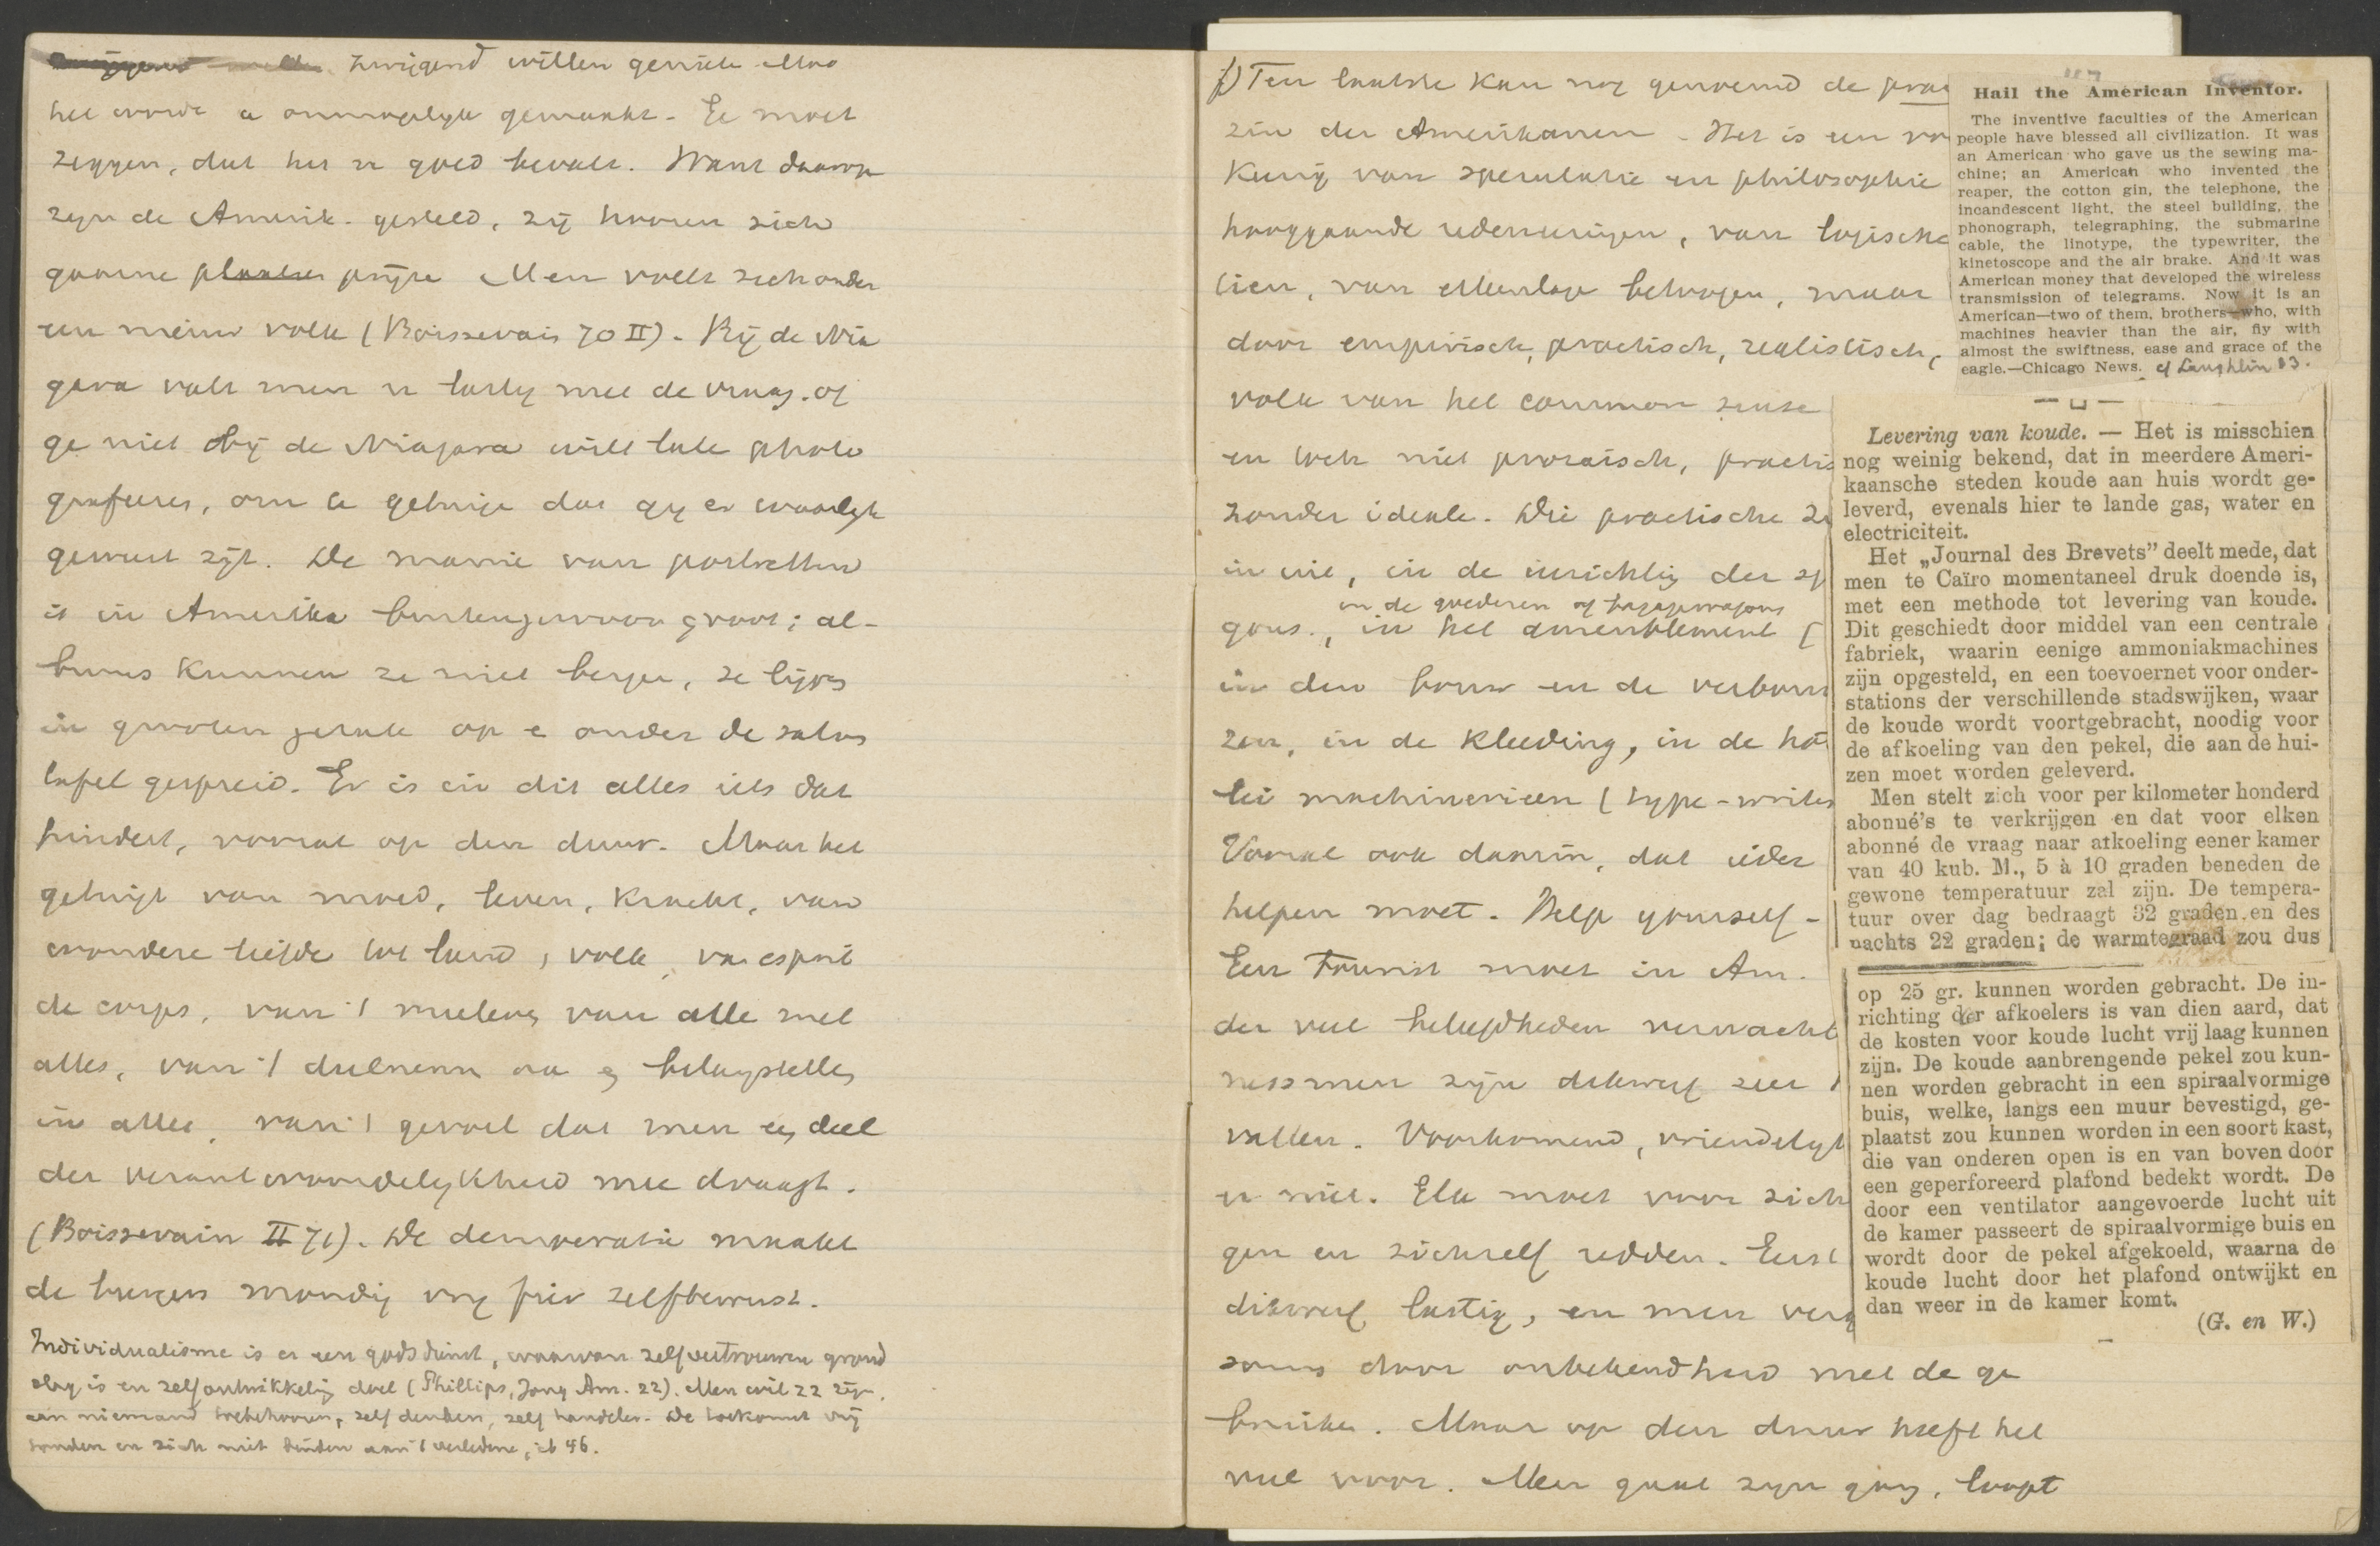 zwijgend willen genieten. Maar
het wordt u onmogelijk gemaakt. Ge moet
zeggen, dat het u goed bevalt. Want daarop
zijn de Amerik. gesteld, zij hooren zich
gaarne prijzen. Men voelt zich onder
een nieuw volk (Boissevain 70 II). Bij de Nia
gara valt men u lastig met de vraag, of
ge niet bij de Niagara wilt laten photo
grafeeren, om te getuigen dat gij er waarlijk
geweest zijt. De manie van portretten
is in Amerika buitengewoon groot; al-
bums kunnen ze niet bergen, ze liggen
in grooten getale op en onder de salon
tafel gespreid. Er is in dit alles iets dat
hindert, vooral op den duur. Maar het
getuigt van moed, leven, kracht, van
wondere liefde tot land, volk, van esprit
de corps, van 't meeleven van alle met
alles, van 't deelnemen aan en belangstelling
in alles, van 't gevoel dat men een deel
der verantwoordelijkheid mee draagt.
(Boissevain II 71). De democratie maakt
de burgers mondig vrij fier zelfbewust.
Individualisme is er een godsdienst, waarvan zelfvertrouwen grond
slag is en zelfontwikkeling doel (Phillips, Jong Am. 22). Men wil 22 zijn,
aan niemand toebehooren, zelf denken, zelf handelen. De toekomst vrij
houden en zich niet binden aan 't verledene, ib 46.
f) Ten laatste kan nog genoemd de prac
zin der Amerikanen. Het is een vo
van speculatie en philosophie
hooggaande redeneeringen, van logische
betoogen, maar
door empirisch, practisch, realistisch,
volk van het common sense
en toch niet prozaisch, practis
zonder ideale. Die practische zi
in uit, in de inrichting der sp
in de goederen of bagagewagons
gons., in het ameublement (
in den bouw en de verbouw
zen, in de kleeding, in de hô
lei machinerieen (type-writer
Vooral ook daarin, dat ieder
helpen moet. Help yourself -
Een tourist moet in Am.
der veel beleefdheden verwacht
nessmen zijn dikwerf zeer
vallen. Voorkomend, vriendelijk
er niet. Elk moet voor zich
gen en zichzelf redden. Eerst
dikwerf lastig, en men verg
soms door onbekendheid met de ge
bruiken. Maar op den duur heeft het
veel voor. Men gaat zijn gang, loopt
Hail the American Inventor.
The inventive faculties of the American
people have blessed all civilization. It was
an American who gave us the sewing ma-
chine; an American who invented the
reaper, the cotton gin, the telephone, the
incandescent light, the steel building, the
phonograph, telegraphing, the submarine
cable, the linotype, the typewriter, the
kinetoscope and the air brake. And it was
American money that developed the wireless
transmission of telegrams. Now it is an
American—two of them, brothers—who, with
machines heavier than the air, fly with
almost the swiftness, ease and grace of the
eagle.—Chicago News. cf Laughlin 83.
Levering van koude. — Het is misschien
nog weinig bekend, dat in meerdere Ameri-
kaansche steden koude aan huis wordt ge-
leverd, evenals hier te lande gas, water en
electriciteit.
Het „Journal des Brevets” deelt mede, dat
men te Caïro momentaneel druk doende is,
met een methode tot levering van koude.
Dit geschiedt door middel van een centrale
fabriek, waarin eenige ammoniakmachines
zijn opgesteld, en een toevoernet voor onder-
stations der verschillende stadswijken, waar
de koude wordt voortgebracht, noodig voor
de afkoeling van den pekel, die aan de hui-
zen moet worden geleverd.
Men stelt zich voor per kilometer honderd
abonné's te verkrijgen en dat voor elken
abonné de vraag naar afkoeling eener kamer
van 40 kub. M., 5 à 10 graden beneden de
gewone temperatuur zal zijn. De tempera-
tuur over dag bedraagt 32 graden en des
nachts 22 graden; de warmtegraad zou dus
op 25 gr. kunnen worden gebracht. De in-
richting der afkoelers is van dien aard, dat
de kosten voor koude lucht vrij laag kunnen
zijn. De koude aanbrengende pekel zou kun-
nen worden gebracht in een spiraalvormige
buis, welke, langs een muur bevestigd, ge-
plaatst zou kunnen worden in een soort kast,
die van onderen open is en van boven door
een geperforeerd plafond bedekt wordt. De
door een ventilator aangevoerde lucht uit
de kamer passeert de spiraalvormige buis en
wordt door de pekel afgekoeld, waarna de
koude lucht door het plafond ontwijkt en
dan weer in de kamer komt.
(G. en W.)